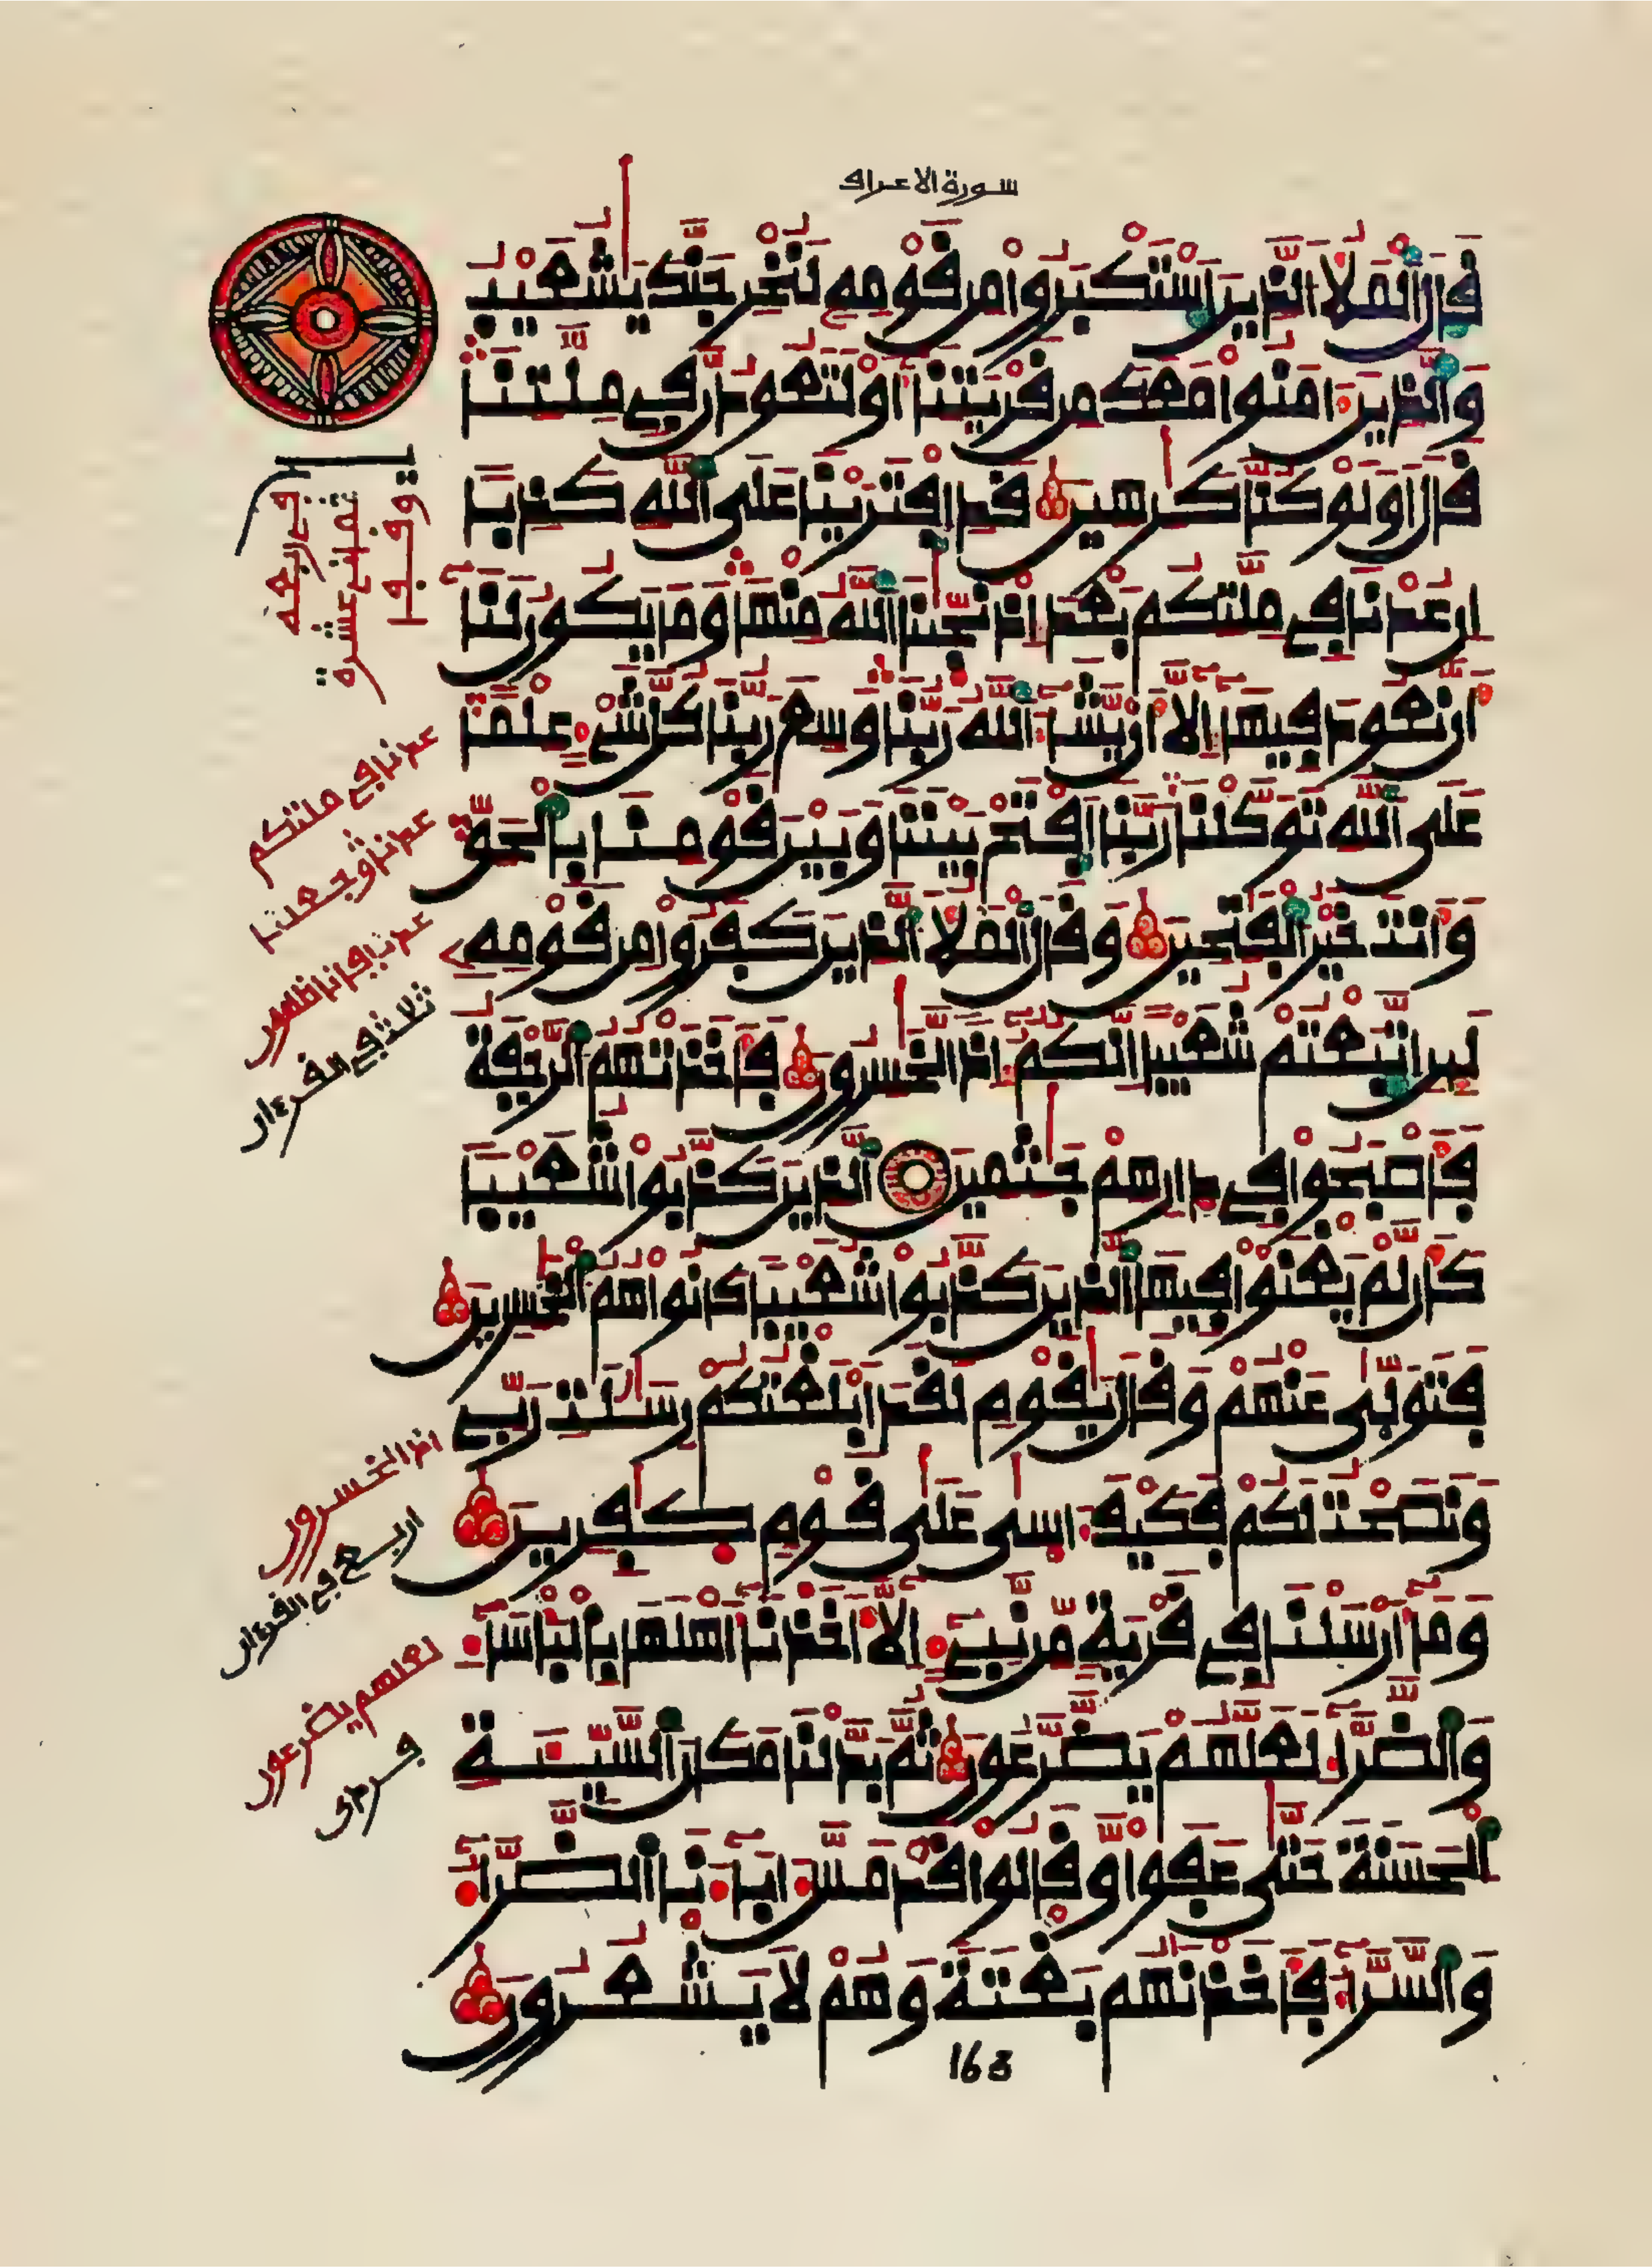 سورة الاعراف
قال الملا الذين استكبروا من قومه لنخرجنك يشعيب
والذين ءامنوا معك من قريتنا أو لتعودن في ملتنا
قال أولو كنا كرهين قد افترينا على الله كذبا
ان عدنا في ملتكم بعد اذ نجينا الله منها وما يكون لنا
أن نعود فيها إلا أن يشاء الله ربنا وسع ربنا كل شيء علما
على الله توكلنا ربنا افتح بيننا وبين قومنا بالحق
وأنت خير الفتحين وقال الملا الذين كفروا من قومه
لين اتبعتم شعيبا انكم إذا لخسرون فأخذتهم الرجفة
فأصبحوا في دارهم جثمين الذين كذبوا شعيبا
كأن لم يغنوا فيها الذين كذبوا شعيبا كانوا هم الخسرين
فتولى عنهم وقال يقوم لقد أبلغتكم رسلت ربي
ونصحت لكم فكيف ءاسى على قوم كفرين
وما أرسلنا في قرية من نبيء إلا أخذنا أهلها بالبأساء
والضراء لعلهم يضرعون ثم بدلنا مكان السيئة
الحسنة حتى عفوا وقالوا قد مس ءاباءنا الضراء
والسراء فأخذنهم بغتة وهم لا يشعرون
163
عدنا في ملتكم
عدنا وجعلنا
عدنا فإنا ظلمون
ثلاث في القرءان
اذا لخسرون
اربع في القرءان
لعلهم يضرعون